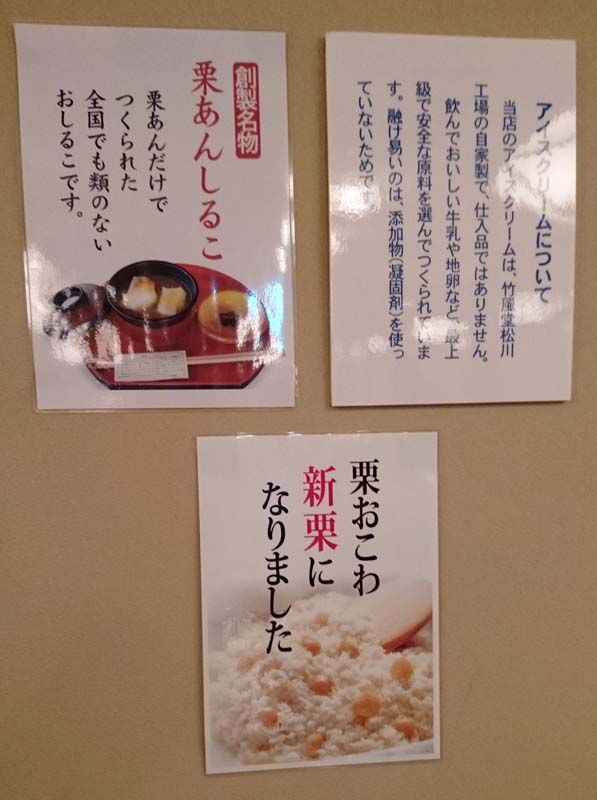 創製名物
栗あんしるこ
栗あんだけで
つくられた
全国でも類のない
おしるこです。
アイスクリームについて
当店のアイスクリームは、竹風堂松川
工場の自家製で、仕入品ではありません。
飲んでおいしい牛乳や地卵など、最上
級で安全な原料を選んでつくられていま
す。融け易いのは、添加物(凝固剤)を使っ
ていないためです。
栗おこわ
新栗に
なりました